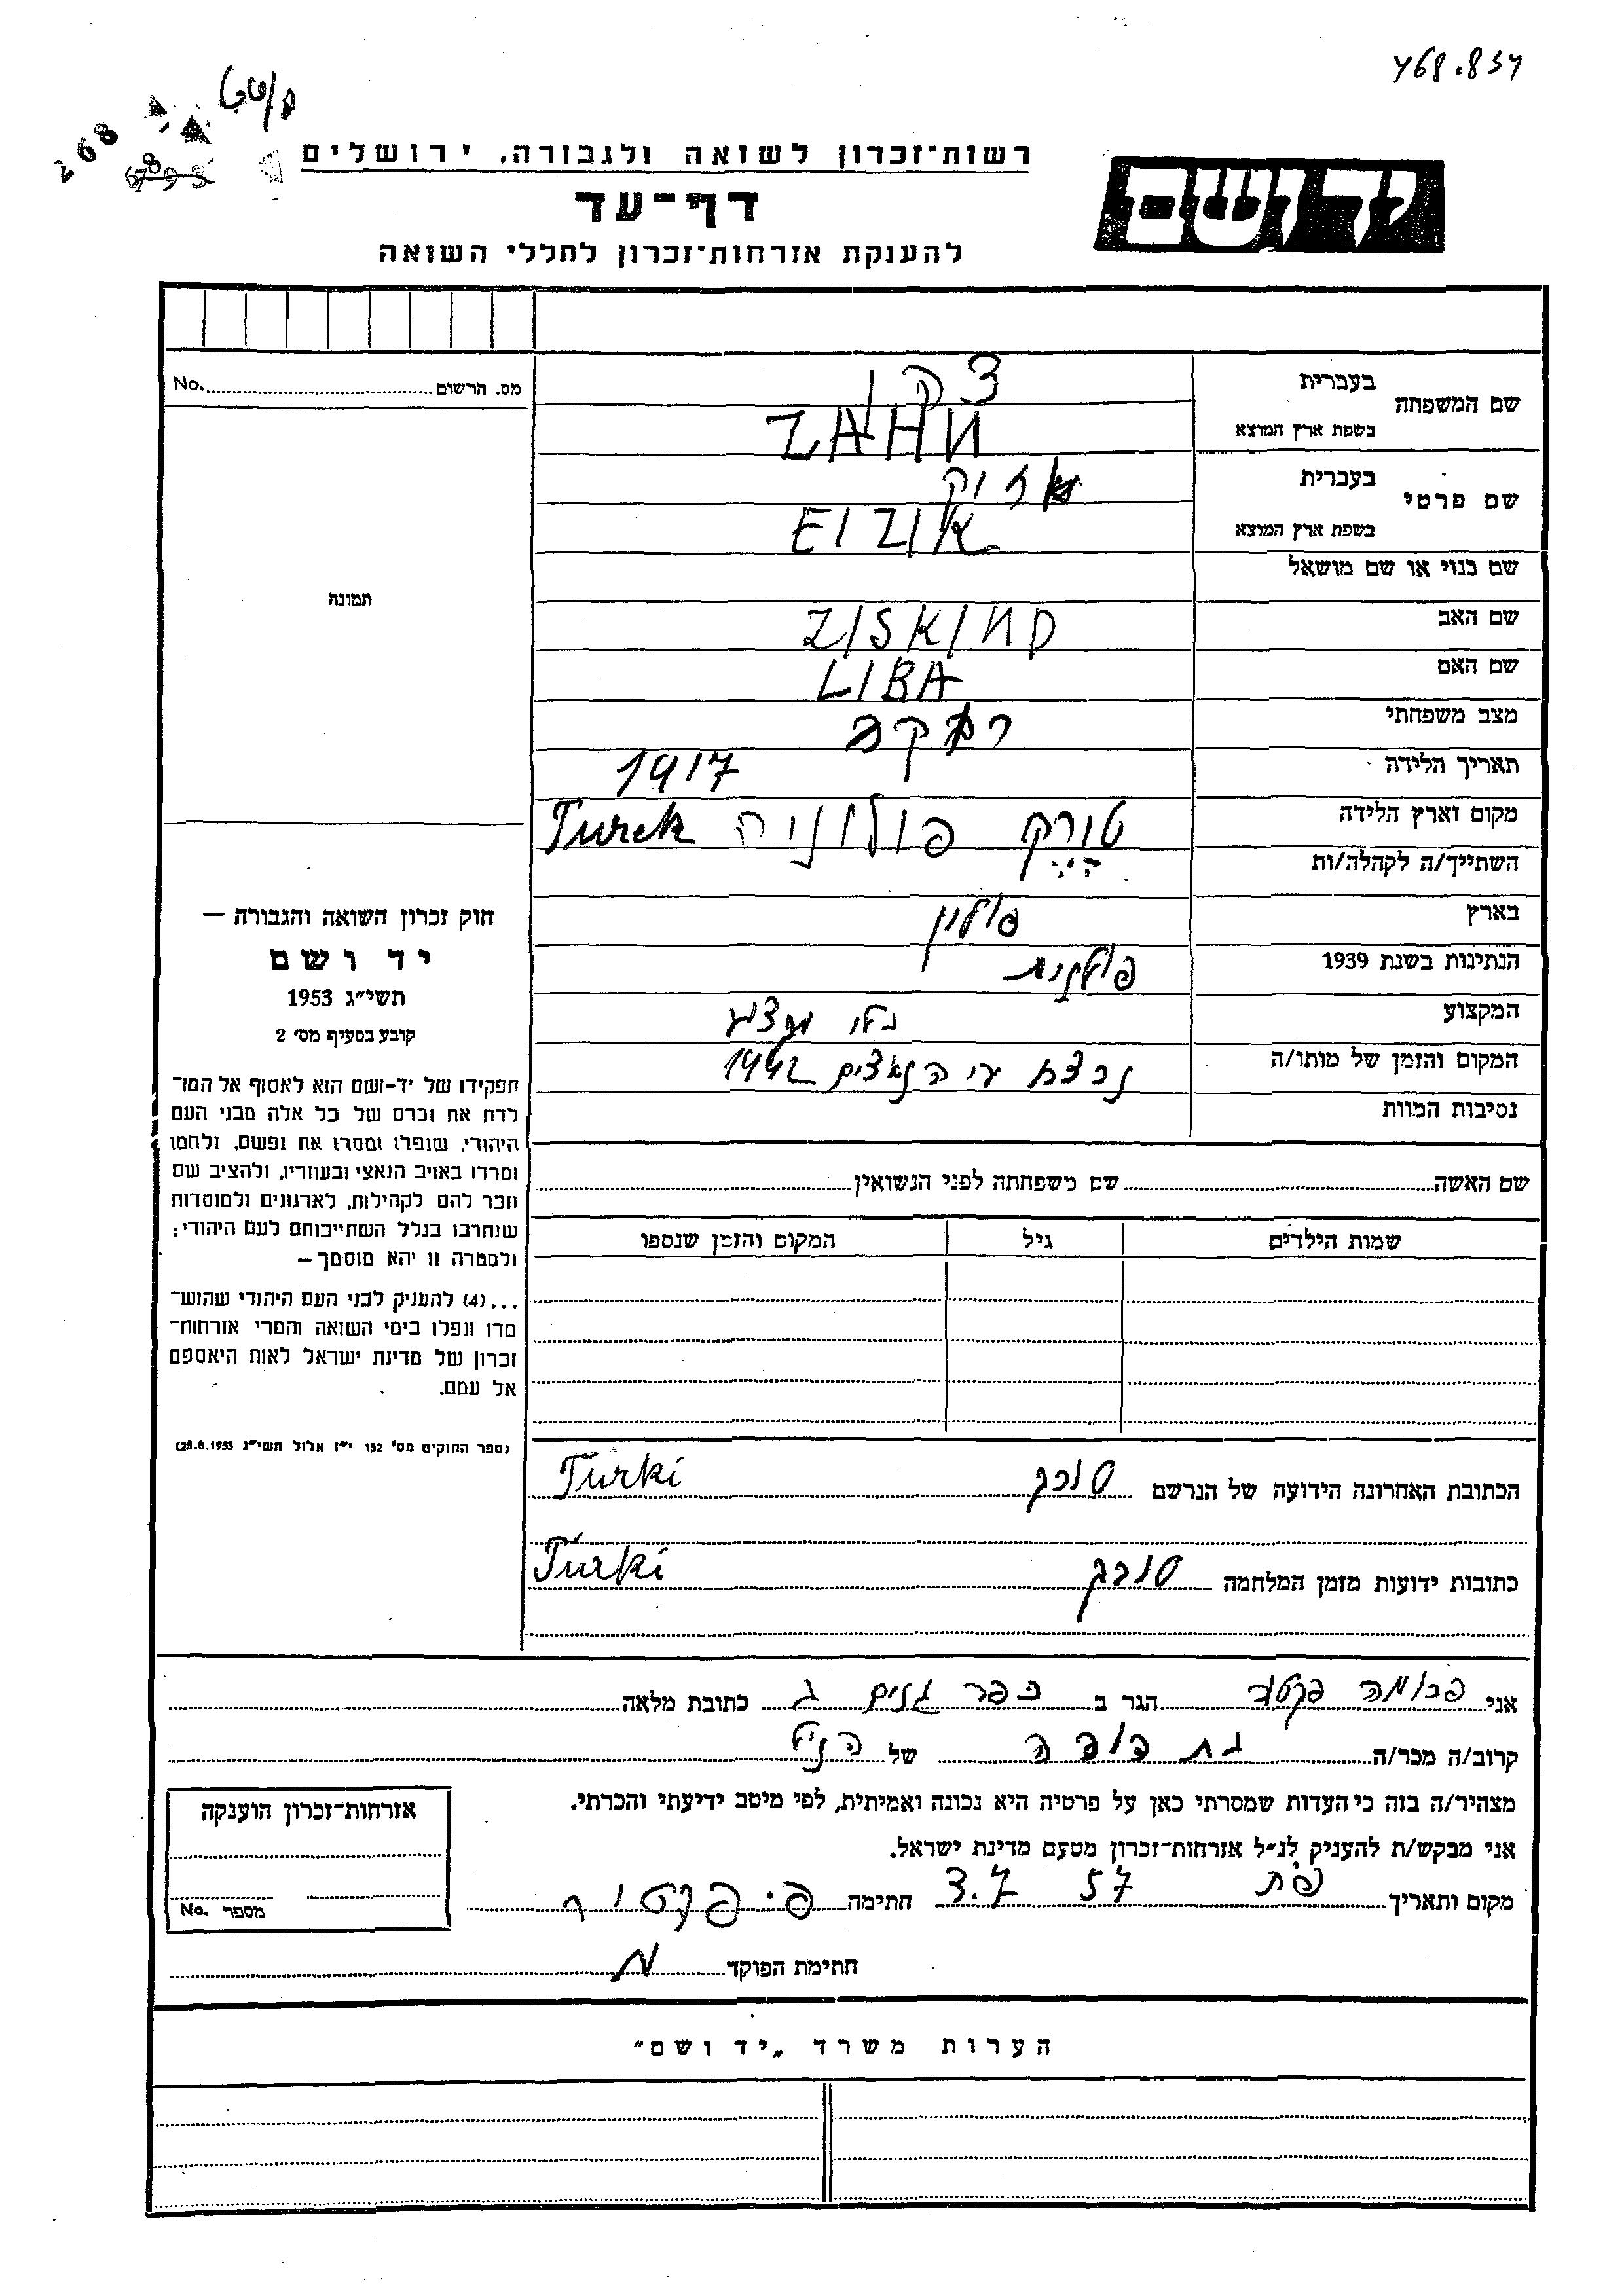 768.834
268
רשות־זכרון לשואה ולגבורה, ירושלים
יד ושם
דף־עד
להענקת אזרחות־זכרון לחללי השואה
מס. הרשום No.
שם המשפחה
בעברית
צהן
בשפת ארץ המוצא
ZAHN
שם פרטי
בעברית
איזיק
בשפת ארץ המוצא
EIZIK
שם כנוי או שם מושאל
תמונה
שם האב ZISKIND
שם האם LIBA
מצב משפחתי
תאריך הלידה 1917
מקום וארץ הלידה טורק פולוניה Turek
השתייך/ה לקהלה/ות
בארץ פולין
הנתינות בשנת 1939 פולנית
המקצוע בלי מקצוע
המקום והזמן של מותו/ה נרצח ע״י הנאצים 1942
נסיבות המוות
שם האשה שם משפחתה לפני הנשואין
שמות הילדים גיל המקום והזמן שנספו
חוק זכרון השואה והגבורה —
יד ושם
תשי״ג 1953
קובע בסעיף מס׳ 2
תפקידו של יד־ושם הוא לאסוף אל המו־
לדת את זכרם של כל אלה מבני העם
היהודי, שנפלו ומסרו את נפשם, נלחמו
ומרדו באויב הנאצי ובעוזריו, ולהציב שם
וזכר להם לקהילות, לארגונים ולמוסדות
שנחרבו בגלל השתייכותם לעם היהודי;
ולמטרה זו יהא מוסמך —
...(4) להעניק לבני העם היהודי שהוש־
מדו ונפלו בימי השואה והמרי אזרחות־
זכרון של מדינת ישראל לאות היאספם
אל עמם.
(ספר החוקים מס׳ 132 י״ז אלול תשי״ג 28.8.1953)
הכתובת האחרונה הידועה של הנרשם טורק Turki
כתובות ידועות מזמן המלחמה טורק Turki
אני פרומה פקטור הגר ב כפר גנים ג כתובת מלאה
קרוב/ה מכר/ה בת דודה של הנ״ל
מצהיר/ה בזה כי העדות שמסרתי כאן על פרטיה היא נכונה ואמיתית, לפי מיטב ידיעתי והכרתי.
אני מבקש/ת להעניק לנ״ל אזרחות־זכרון מטעם מדינת ישראל.
מקום ותאריך פ״ת 3.7 57 חתימה פ. פקטור
חתימת הפוקד
אזרחות־זכרון הוענקה
מספר No.
הערות משרד „יד ושם״